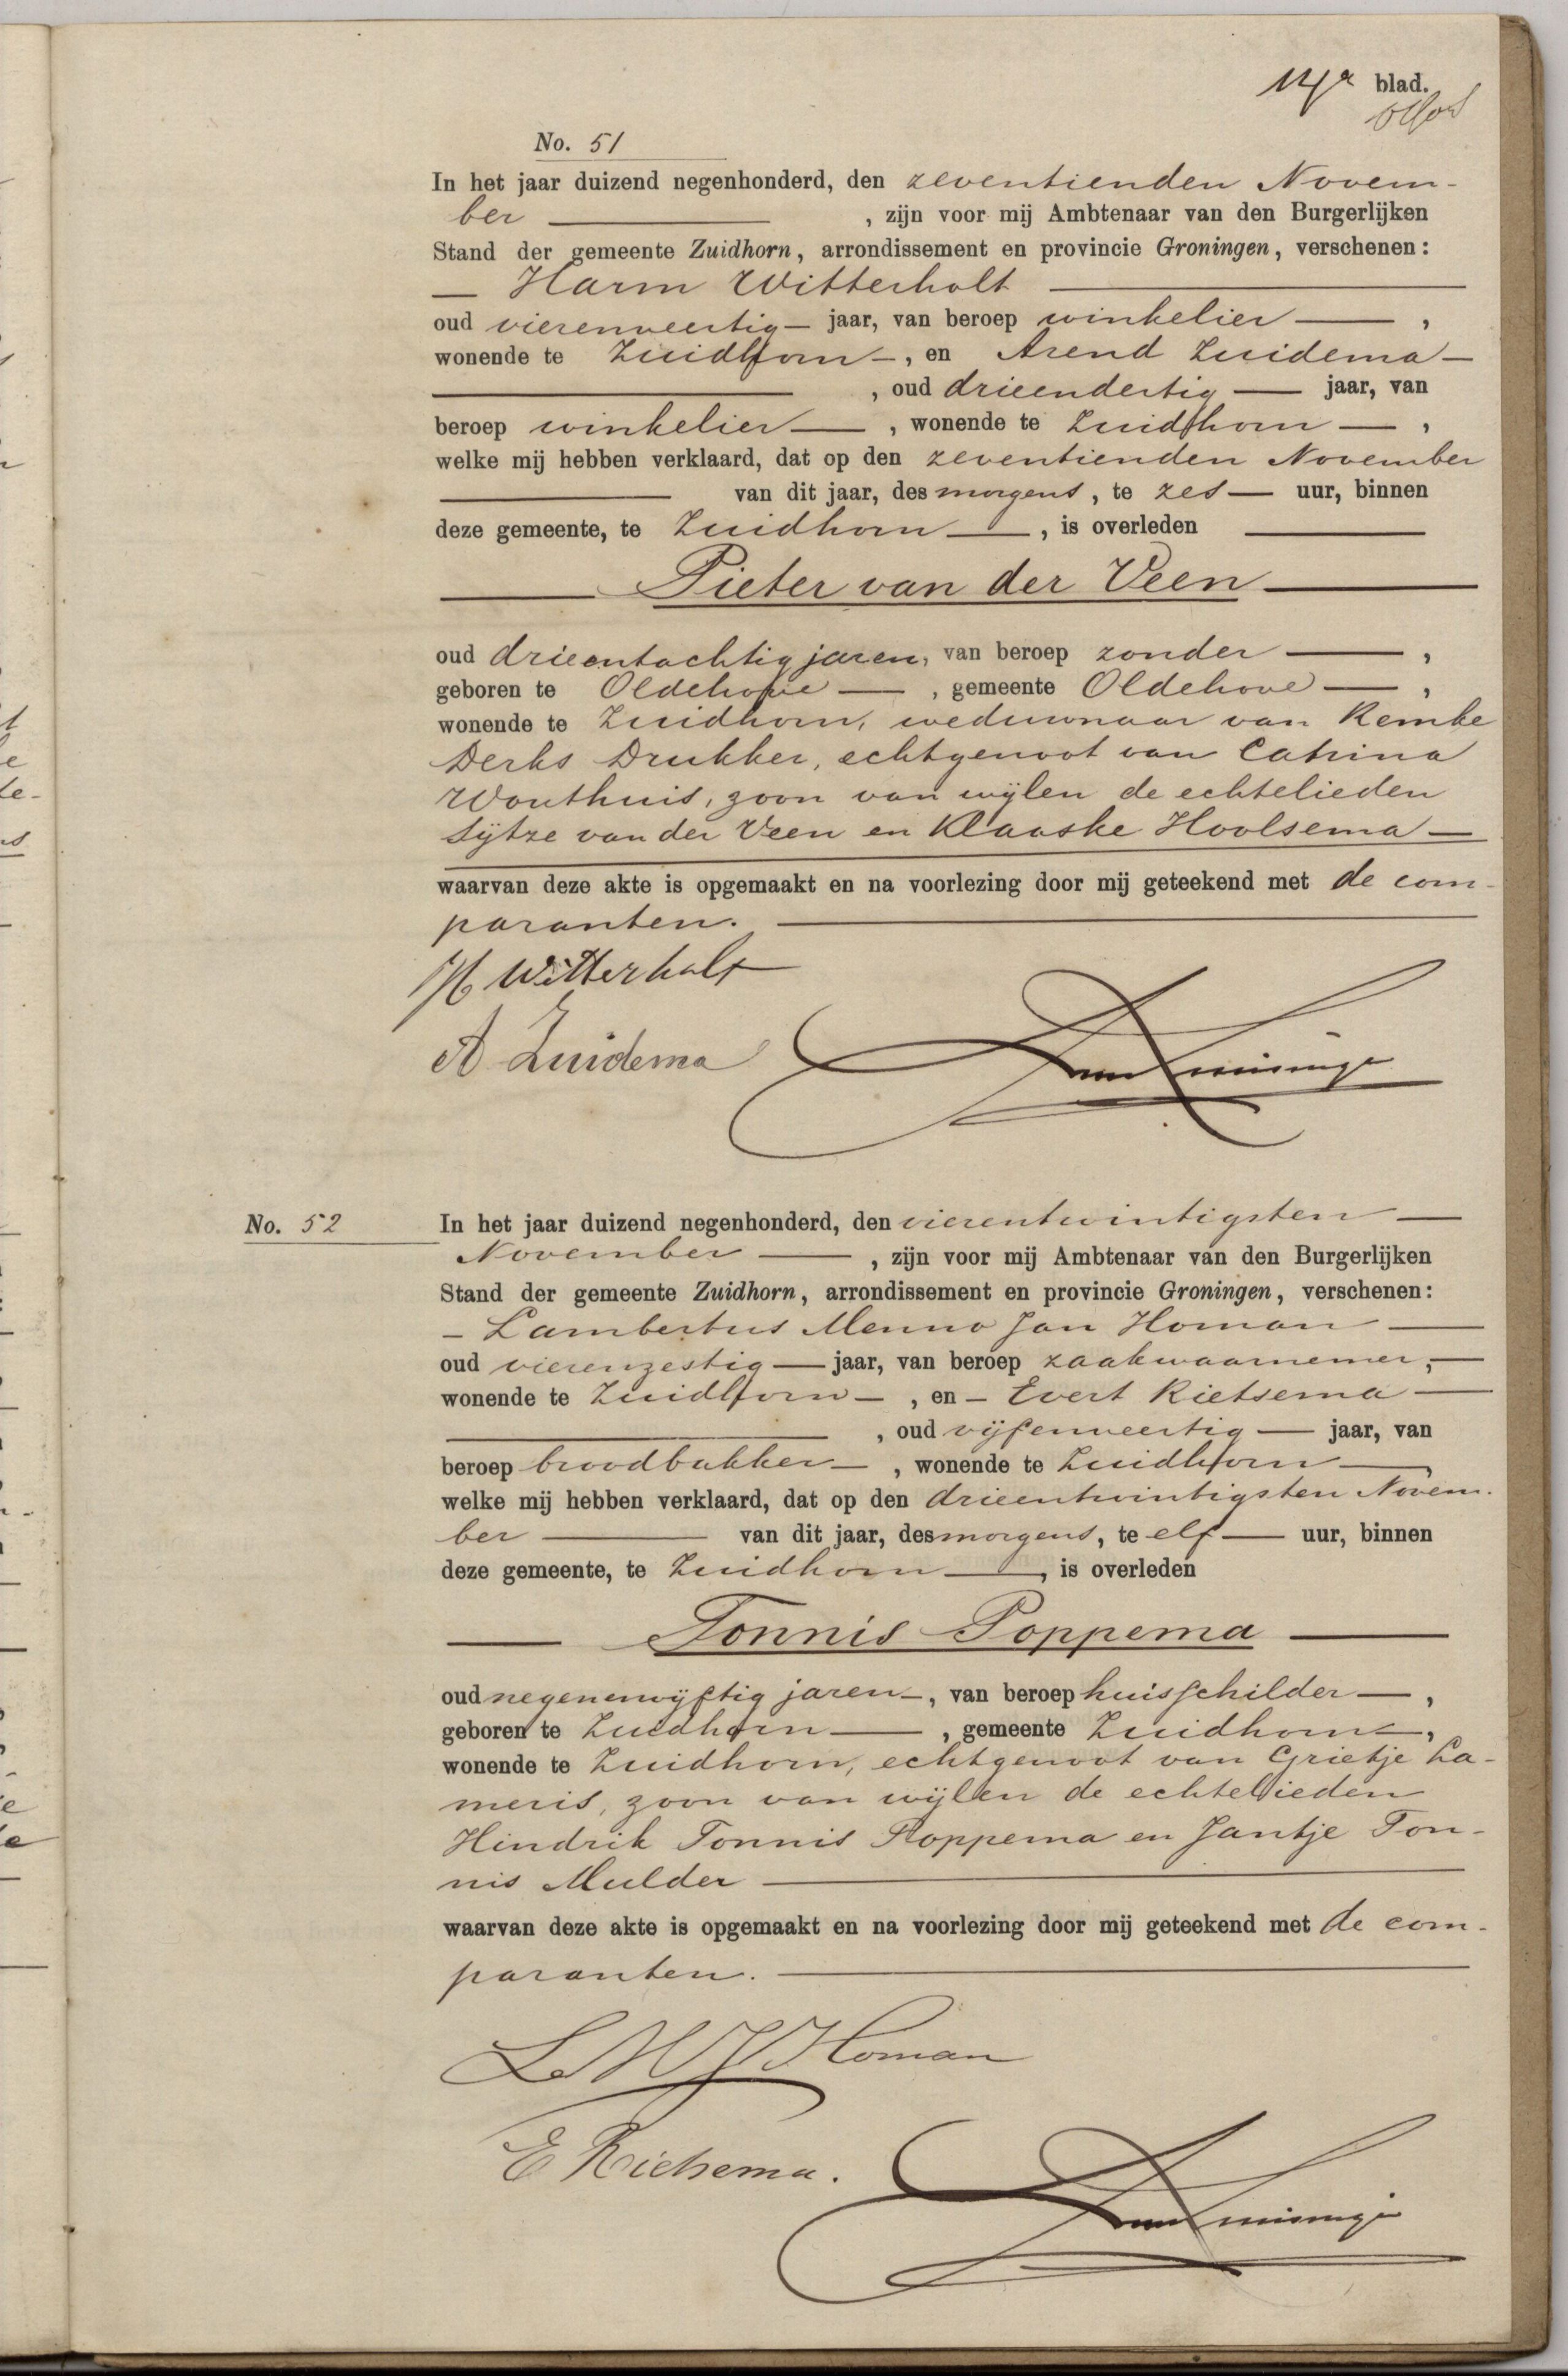 14e blad.
No. 51
In het jaar duizend negenhonderd, den zeventienden Novem-
ber , zijn voor mij Ambtenaar van den Burgerlijken
Stand der gemeente Zuidhorn, arrondissement en provincie Groningen, verschenen:
Harm Witterholt
oud vierenveertig jaar, van beroep winkelier ,
wonende te Zuidhorn , en Arend Zuidema
, oud drieendertig jaar, van
beroep winkelier , wonende te Zuidhorn ,
welke mij hebben verklaard, dat op den zeventienden November
van dit jaar, des morgens, te zes uur, binnen
deze gemeente, te Zuidhorn , is overleden
Pieter van der Veen
oud drieentachtig jaren, van beroep zonder ,
geboren te Oldehove , gemeente Oldehove ,
wonende te Zuidhorn, weduwnaar van Remke
Derks Drukker, echtgenoot van Catrina
Wouthuis, zoon van wijlen de echtelieden
Sijtze van der Veen en Klaaske Hoolsema
waarvan deze akte is opgemaakt en na voorlezing door mij geteekend met de com-
paranten.
H Witterholt
A Zuidema
No. 52
In het jaar duizend negenhonderd, den vierentwintigsten
November , zijn voor mij Ambtenaar van den Burgerlijken
Stand der gemeente Zuidhorn, arrondissement en provincie Groningen, verschenen:
Lambertus Menno Jan Homan
oud vierenzestig jaar, van beroep zaakwaarnemer,
wonende te Zuidhorn , en Evert Rietsema
, oud vijfenveertig jaar, van
beroep broodbakker , wonende te Zuidhorn
welke mij hebben verklaard, dat op den drieentwintigsten Novem-
ber van dit jaar, des morgens, te elf uur, binnen
deze gemeente, te Zuidhorn , is overleden
Tonnis Poppema
oud negenenvijftig jaren , van beroep huisschilder ,
geboren te Zuidhorn , gemeente Zuidhorn ,
wonende te Zuidhorn, echtgenoot van Grietje La-
meris, zoon van wijlen de echtelieden
Hindrik Tonnis Poppema en Jantje Ton-
nis Mulder
waarvan deze akte is opgemaakt en na voorlezing door mij geteekend met de com-
paranten.
L M J Homan
E Rietsema.